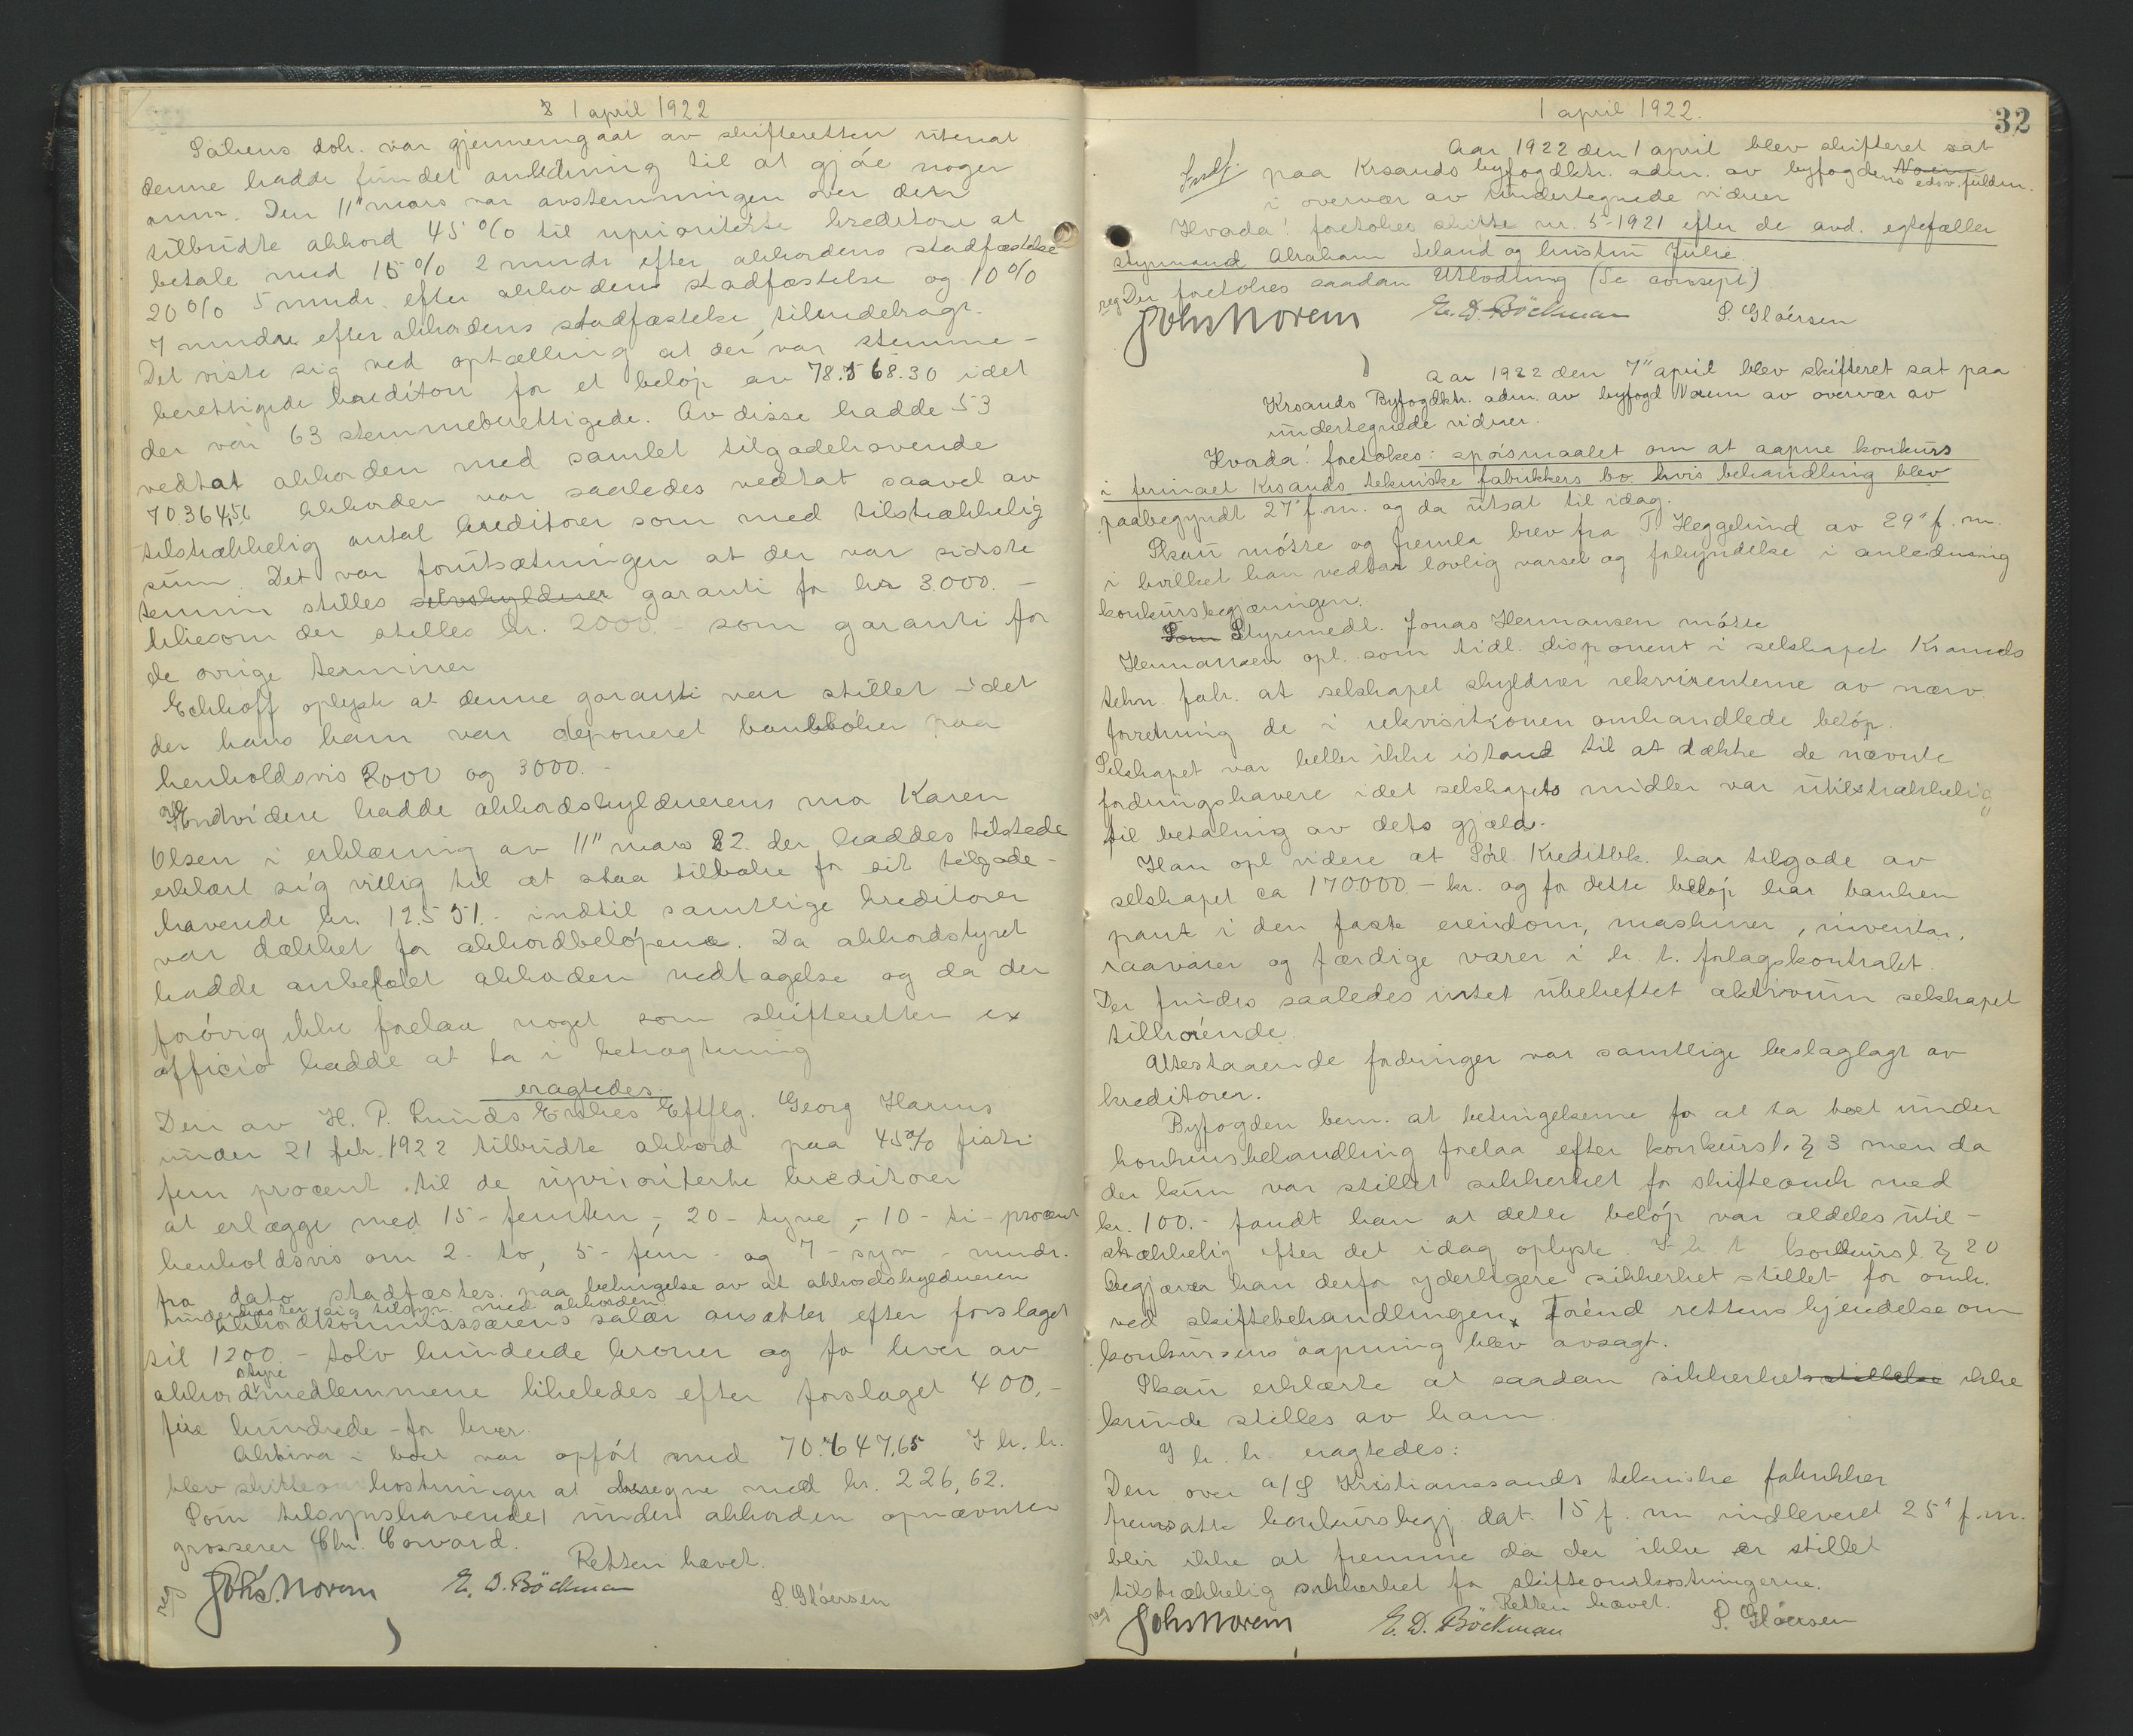 1 april 1922
Sakens dok. var gjennemgaat av skifteretten uten at
denne hadde fundet anledning til at gjóe nogen
anm. Den 11" mars var avstemningen over den
tilbudte akkord 45 % til uprioriterte kreditorer at
betale med 15 % 2 mndr efter akkordens stadfæstelse
20 % 5 mndr. efter akkordens stadfæstelse og 10 %
7 mndr efter akkordens stadfæstelse, tilendebragt.
Det viste sig ved optælling at der var stemme-
berettigede kreditorer for et beløp av 78.568.30 idet
der var 63 stemmeberettigede. Av disse hadde 53
vedtat akkorden med samlet tilgodehavende
70.364,56 Akkorden var saaledes vedtat saavel av
tilstrækkelig antal kreditorer som med tilstrækkelig
sum. Det var forutsætningen at der var sidste
termin stilles selvskyldner garanti for kr 3000.-
likesom der stilles kr. 2000.- som garanti for
de øvrige terminer
Eckhoff oplyste at denne garanti var stillet idet
der hans ham var deponeret bankbóker paa
henholdsvis 2000 og 3000.-
Endvidere hadde akkordskyldnerens mor Karen
Olsen i erklæring av 11" mars 22. der haddes tilstede
erklært sig villig til at staa tilbake for sit tilgode-
havende kr. 12.551.- indtil samtlige kreditorer
var dækket for akkordbelópene. Da akkordstyret
hadde anbefalet akkorden vedtagelse og da der
fórvrig ikke forelaa noget som skifteretten ex
officio hadde at ta i betragtning
eragtedes.
Den av H. P. Lunds Enkes Eftflg. Georg Harms
under 21 feb. 1922 tilbudte akkord paa 45 % firti
fem procent til de uprioriterte kreditorer
at erlægge med 15 - femten -, 20 - tyve -, 10 - ti - procent
henholdsvis om 2 - to, 5 - fem - og 7 - syv - mndr.
fra dato stadfæstes paa betingelse av at akkordskyldneren
underkaster sig tilsyn med akkorden
Akkordkommissærens salær ansættes efter forslaget
til 1200.- tolv hundrede kroner og for hver av
akkordstyremedlemmene likeledes efter forslaget 400.-
fire hundrede - for hver.
Aktiva i boet var opfórt med 70.647,65 I h. h.
blev skifteomkostninger at beregne med kr. 226,62.
Som tilsynshavende under akkorden opnævntes
grosserer Chr. Corvard.
Retten hævet.
reg Johs. Norem E. D. Böckman S. Glóersen
1 april 1922.
32
Aar 1922 den 1 april blev skifteret sat
paa Krsands byfogdktr. adm. av byfogdens Norem edsv. fuldm.
i overvær av undertegnede vidner
Hvada! foretokes skifte nr. 5-1921 efter de avd. egtefæller
styrmand Abraham Seland og hustru Julie.
reg Der foretokes saadan Utlodning (Se concept)
Johs Norem E. D. Böckman S. Glóersen
Aar 1922 den 7" april blev skifteret sat paa
Krsands Byfogdktr. adm. av byfogd Norem av overvær av
undertegnede vidner.
Hvada! foretokes: spórsmaalet om at aapne konkurs
i firmaet Krsands tekniske fabrikkers bo hvis behandling blev
paabegyndt 27" f. m. og da utsat til idag.
Skau mótte og fremla brev fra T. Heggelund av 29" f. m.
i hvilket han vedtar lovlig varsel og forkyndelse i anledning
konkursbegjæringen.
Som Styremedl. Jonas Hermansen mótte
Hermansen opl. som tidl. disponent i selskapet Krsands
tekn. fabr. at selskapet skyldner rekvirenterne av nærv.
forretning de i rekvisitionen omhandlede belóp.
Selskapet var heller ikke istand til at dække de nævnte
fordringshavere idet selskapets midler var utilstrækkelig
til betaling av dets gjæld.
Han opl videre at Sórl. Kreditbk. har tilgode av
selskapet ca 170000.- kr. og for dette belóp har banken
pant i den faste eiendom, maskiner, inventar,
raavarer og færdige varer i h. t. forlagskontrakt.
Der findes saaledes intet ubeheftet aktivum selskapet
tilhórende.
Utestaaende fordringer var samtlige beslaglagt av
kreditorer.
Byfogden bem. at betingelserne for at ta boet under
konkursbehandling forelaa efter konkursl. § 3 men da
der kun var stillet sikkerhet for skifteomk med
kr. 100.- fandt han at dette belóp var aldeles util-
strækkelig efter det idag oplyste. I h t konkursl. § 20
begjærer han derfor yderligere sikkerhet stillet for omk.
ved skiftebehandlingen, fórend rettens kjendelse om
konkursens aapning blev avsagt.
Skau erklærte at saadan sikkerhetsstillelse ikke
kunde stilles av ham.
I h. h. eragtedes:
Den over a/S Kristianssands tekniske fabrikker
fremsatte konkursbegj. dat. 15 f. m indleveret 25" f. m.
blir ikke at fremme da der ikke er stillet
tilstrækkelig sikkerhet for skifteomkostningerne.
Retten hævet.
reg Johs Norem E. D. Böckman S. Glóersen